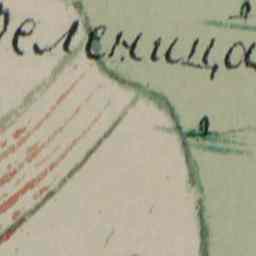 еленица